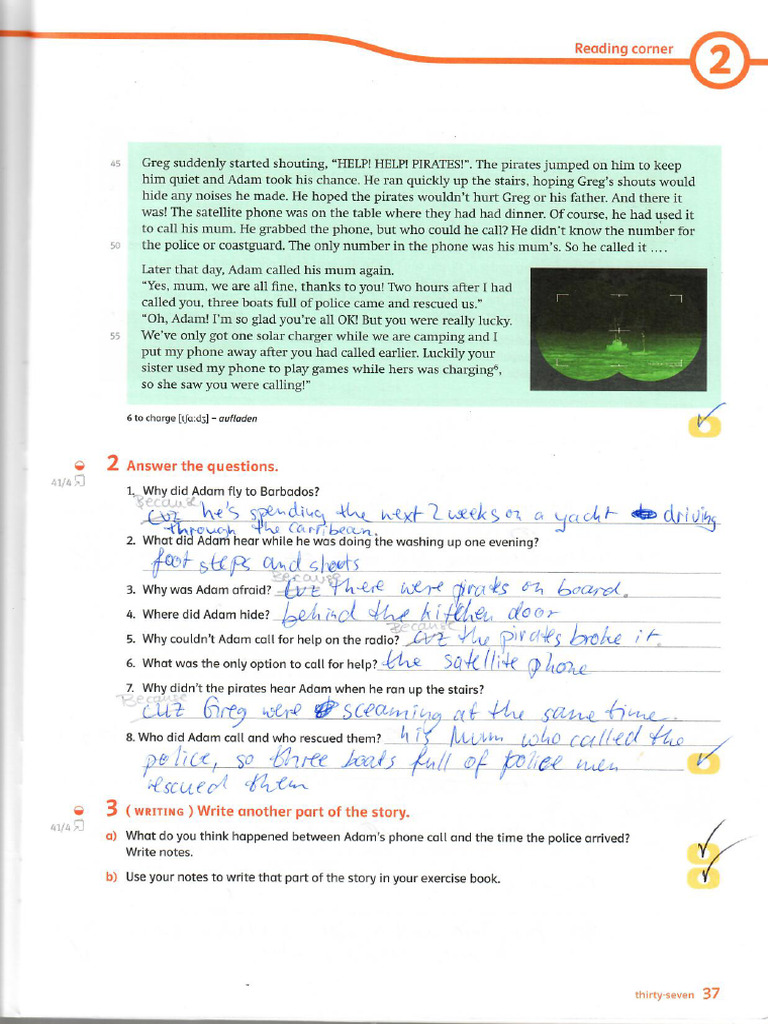 Reading corner
2
45 Greg suddenly started shouting, "HELP! HELP! PIRATES!". The pirates jumped on him to keep
him quiet and Adam took his chance. He ran quickly up the stairs, hoping Greg's shouts would
hide any noises he made. He hoped the pirates wouldn't hurt Greg or his father. And there it
was! The satellite phone was on the table where they had had dinner. Of course, he had used it
to call his mum. He grabbed the phone, but who could he call? He didn't know the number for
50 the police or coastguard. The only number in the phone was his mum's. So he called it ....
Later that day, Adam called his mum again.
"Yes, mum, we are all fine, thanks to you! Two hours after I had
called you, three boats full of police came and rescued us."
"Oh, Adam! I'm so glad you're all OK! But you were really lucky.
55 We've only got one solar charger while we are camping and I
put my phone away after you had called earlier. Luckily your
sister used my phone to play games while hers was charging⁶,
so she saw you were calling!"
6 to charge [tʃɑːdʒ] – aufladen
2 Answer the questions.
41/4
1. Why did Adam fly to Barbados?
Because
cuz he's spending the next 2 weeks on a yacht driving
through the carribean.
2. What did Adam hear while he was doing the washing up one evening?
foot steps and shouts
Because
3. Why was Adam afraid? cuz There were pirates on board.
4. Where did Adam hide? behind the kitchen door
Because
5. Why couldn't Adam call for help on the radio? cuz the pirates broke it.
6. What was the only option to call for help? the satellite phone
7. Why didn't the pirates hear Adam when he ran up the stairs?
Because
cuz Greg were screaming at the same time.
8. Who did Adam call and who rescued them? his Mum who called the
police, so three boats full of police men
rescued them
3 (WRITING) Write another part of the story.
41/4
a) What do you think happened between Adam's phone call and the time the police arrived?
Write notes.
b) Use your notes to write that part of the story in your exercise book.
thirty-seven 37